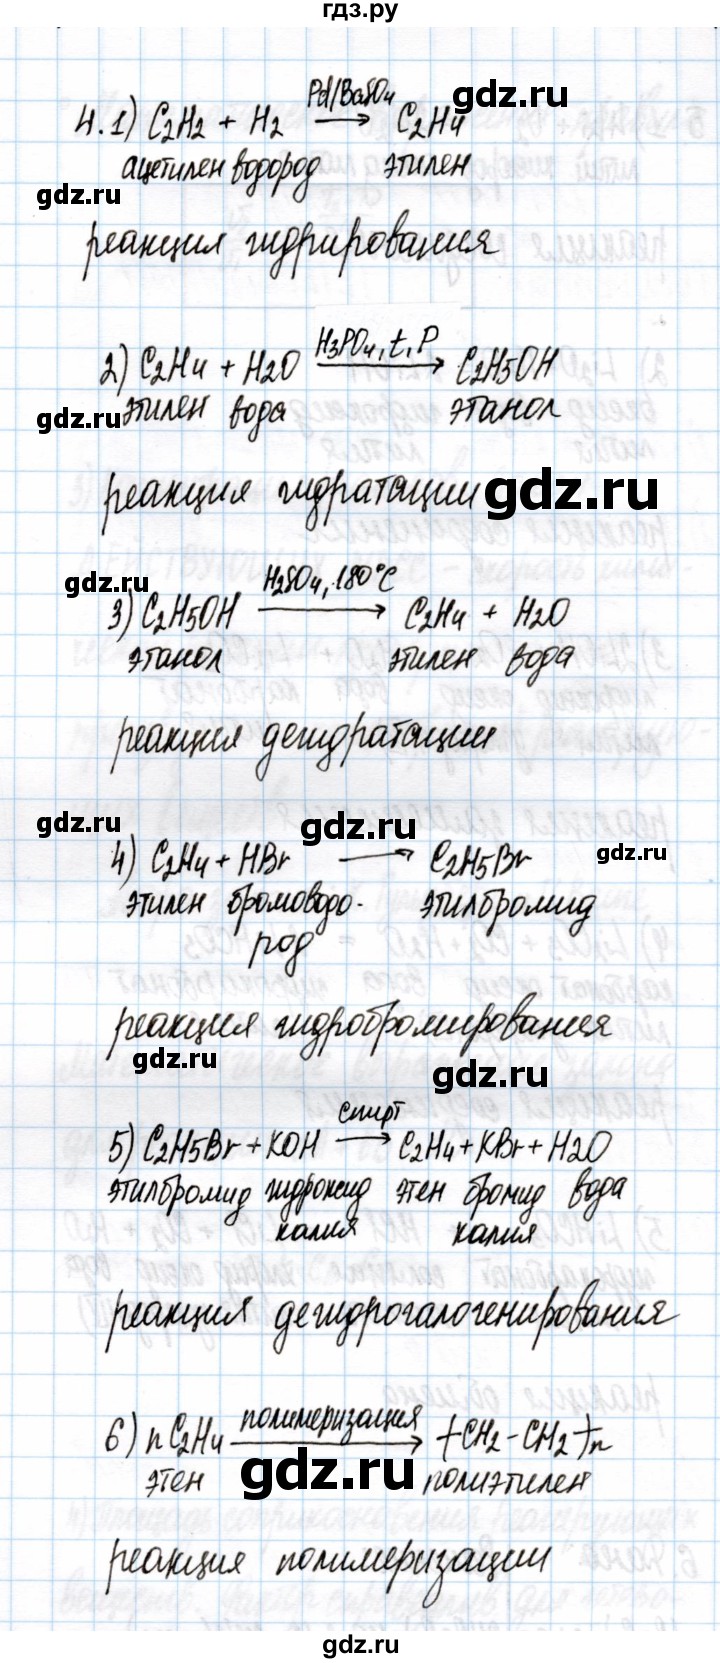 гдз.ру
4. 1) C2H2 + H2 Pd/BaSO4 → C2H4
ацетилен водород этилен
gdz.ru
gdz.ru
реакция гидрирования
2) C2H4 + H2O H3PO4, t, P → C2H5OH
этилен вода этанол
gdz.ru
реакция гидратации
gdz.ru
3) C2H5OH H2SO4, 180°C → C2H4 + H2O
gdz.ru
этанол этилен вода
реакция дегидратации
gdz.ru
gdz.ru
4) C2H4 + HBr → C2H5Br
gdz.ru
этилен бромоводо- этилбромид
род
реакция гидробромирования
gdz.ru
gdz.ru
5) C2H5Br + KOH спирт → C2H4 + KBr + H2O
этилбромид гидроксид этен бромид вода
калия калия
реакция дегидрогалогенирования
6) nC2H4 полимеризация → (CH2-CH2)n
этен полиэтилен
gdz.ru
реакция полимеризации
gdz.ru